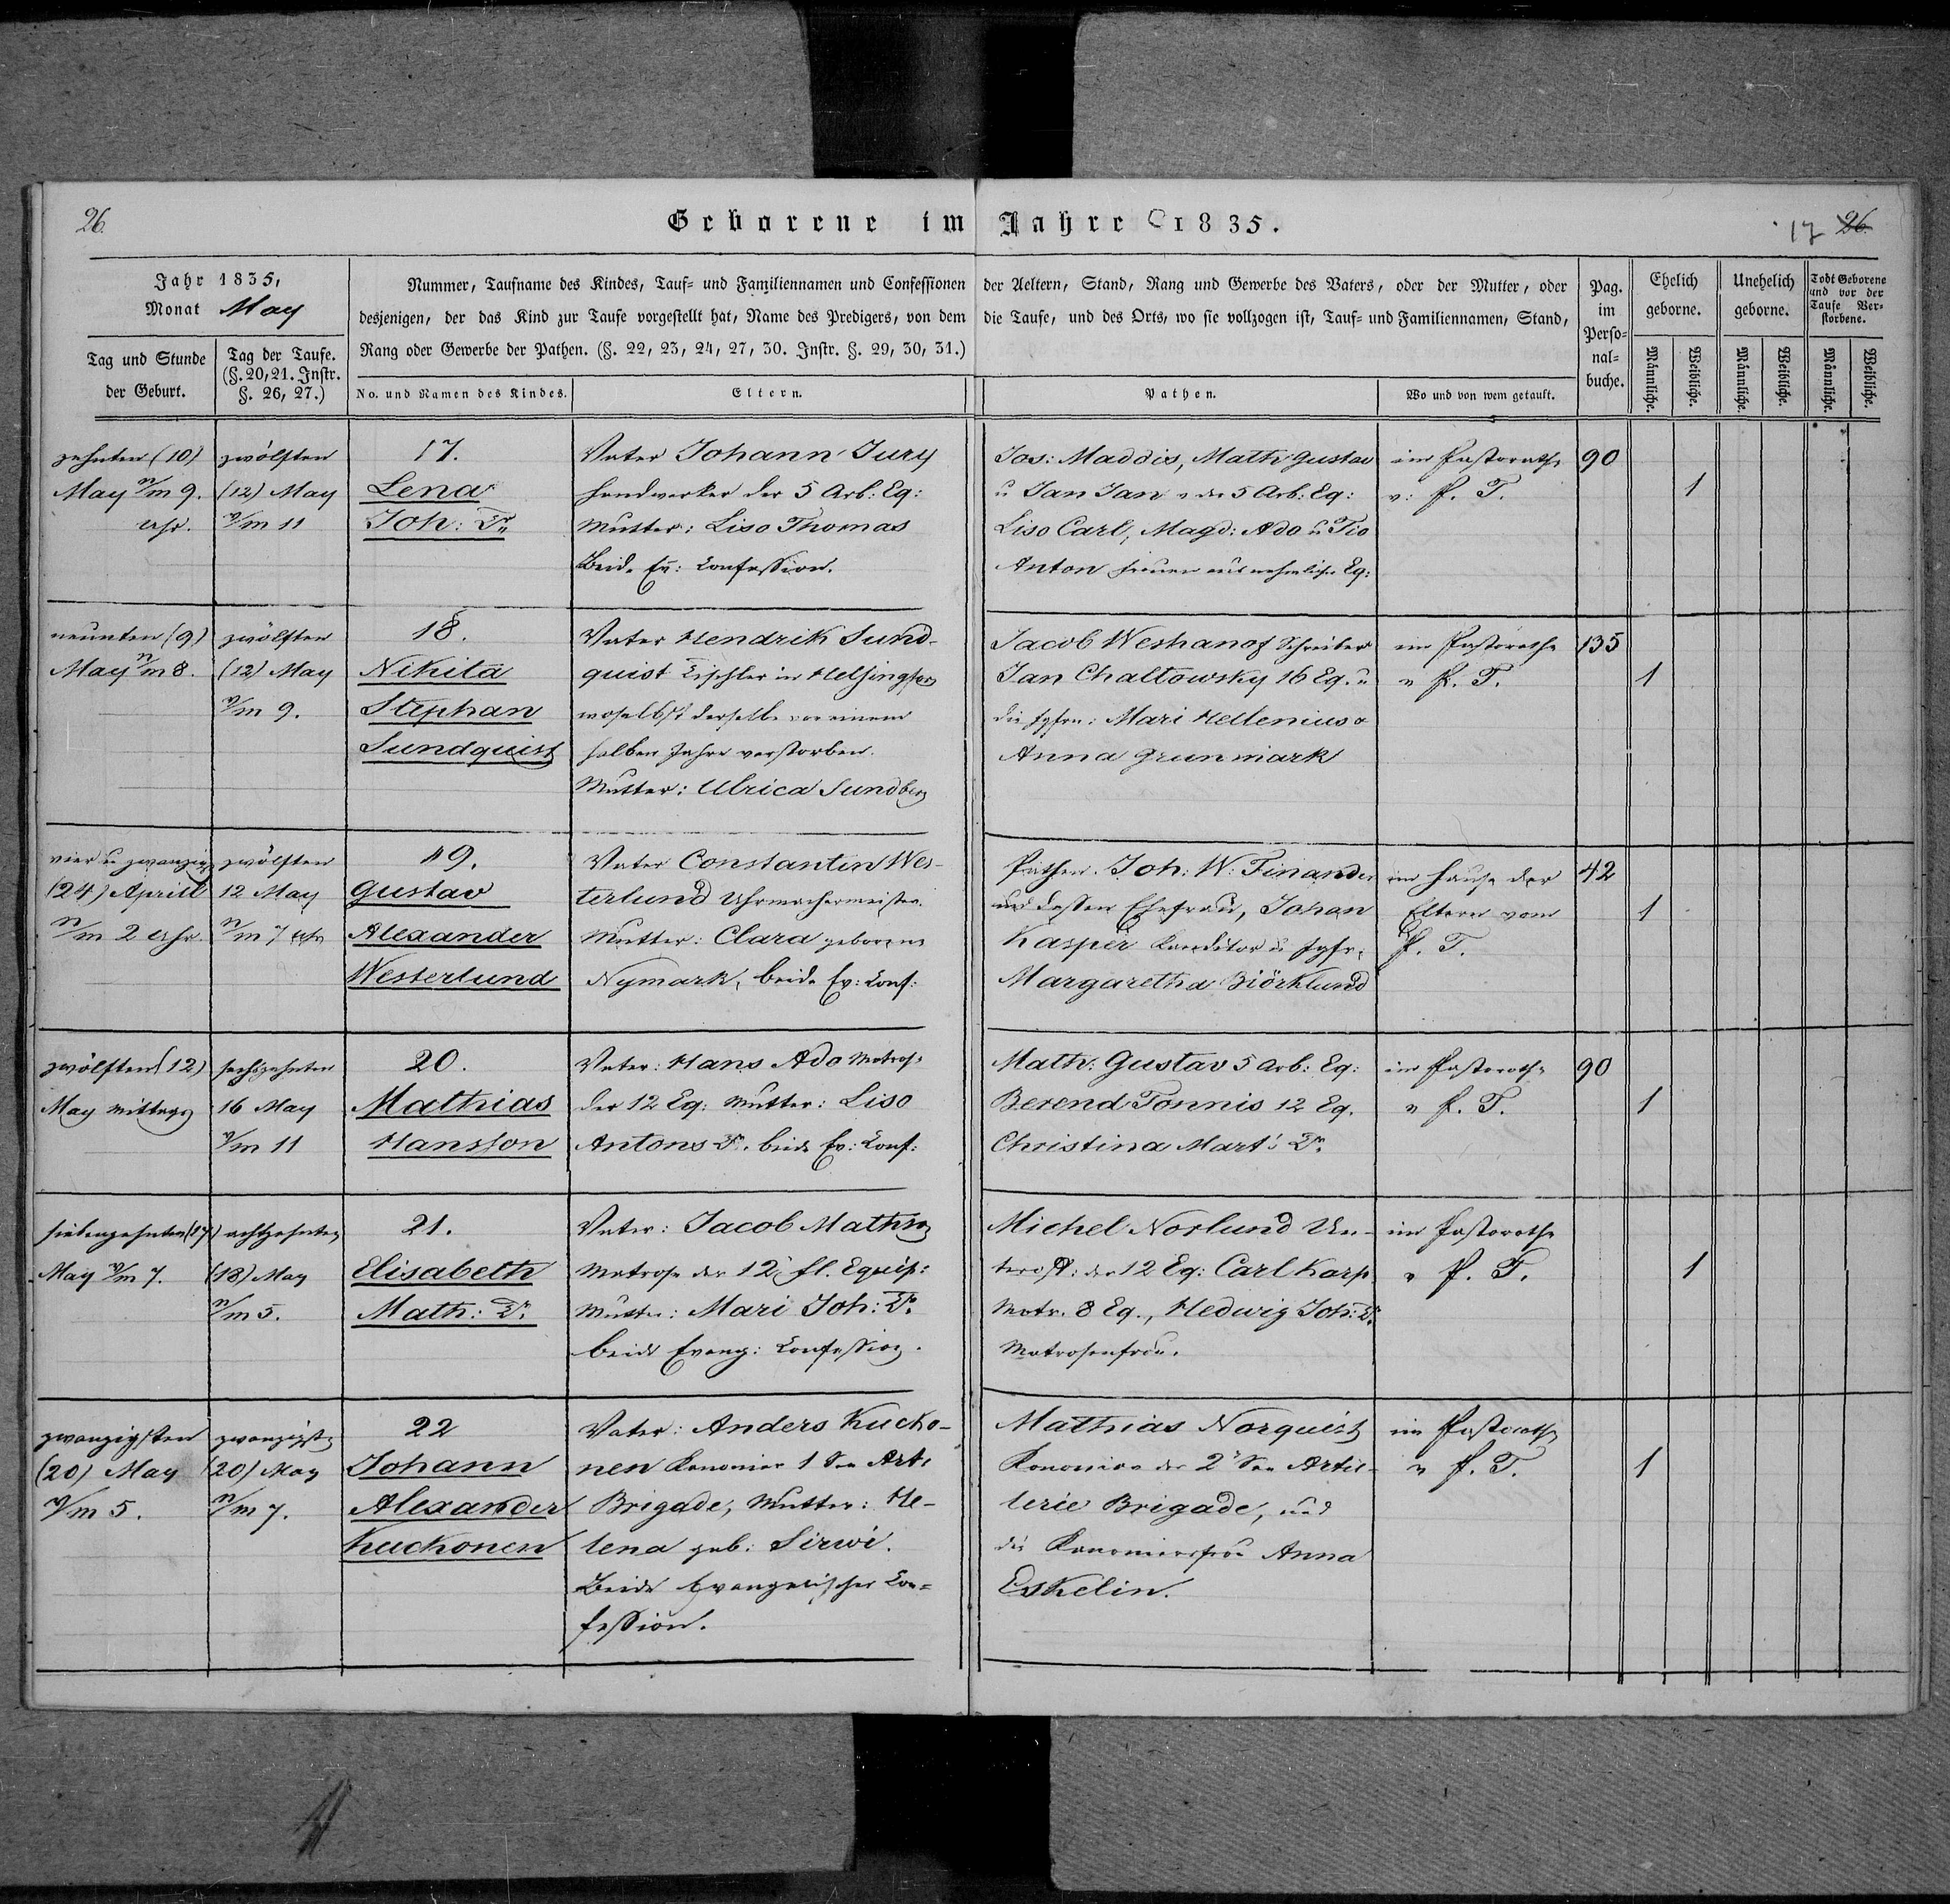 26.
Geborene im Jahre 1835.
17 26.
Jahr 1835,
Monat May
Tag und Stunde
der Geburt.
Tag der Taufe.
(§. 20, 21. Instr.
§. 26, 27.)
Nummer, Taufname des Kindes, Tauf- und Familiennamen und Confessionen der Aeltern, Stand, Rang und Gewerbe des Vaters, oder der Mutter, oder
desjenigen, der das Kind zur Taufe vorgestellt hat, Name des Predigers, von dem die Taufe, und des Orts, wo sie vollzogen ist, Tauf- und Familiennamen, Stand,
Rang oder Gewerbe der Pathen. (§. 22, 23, 24, 27, 30. Instr. §. 29, 30, 31.)
No. und Namen des Kindes.
Eltern.
Pathen.
Wo und von wem getauft.
Pag.
im
Perso-
nal-
buche.
Ehelich
geborne.
Unehelich
geborne.
Todt Geborene
und vor der
Taufe Ver-
storbene.
Männliche.
Weibliche.
Männliche.
Weibliche.
Männliche.
Weibliche.
zehnten (10)
May n/m 9.
Uhr.
zwölften
(12) May
v/m 11
17.
Lena
Joh: Tr.
Vater Johann Jury
Handwerker der 5 Arb: Eq:
Mutter: Liso Thomas
Beide Ev: Confession.
Jos: Maddis, Math Gustav
u Jan Jan v der 5 Arb: Eq:
Liso Carl, Magd: Ado u Tio
Anton Frauen aus nehmlicher Eq:
im Pastorathe
v: P. T.
90
1
neunten (9)
May n/m 8.
zwölften
(12) May
v/m 9.
18.
Nikita
Stephan
Sundquist
Vater Hendrik Sund-
quist Tischler in Helsingfors
woselbst derselbe vor einem
halben Jahre verstorben.
Mutter: Ulrica Sundberg
Jacob Weshanof Schreiber
Jan Chaltowsky 16 Eq. u
die Jgfrn: Mari Hellenius &
Anna Grunmark
im Pastorathe
v P. T.
135
1
vier u zwanzig
(24) Aprill
n/m 2 Uhr.
zwölften
12 May
n/m 7 Uhr
19.
Gustav
Alexander
Westerlund
Vater Constantin Wes-
terlund Uhrmachermeister.
Mutter: Clara geborene
Nymark, beide Ev: Conf:
Pathen. Joh: W: Finander
und dessen Ehefrau, Johan
Kasper Conditor u Jgfr:
Margaretha Biörklund
im Hause der
Eltern vom
P. T.
42
1
zwölften (12)
May Mittags
sechzehnten
16 May
v/m 11
20.
Mathias
Hansson
Vater: Hans Ado Matrose
der 12 Eq: Mutter: Liso
Antons Tr. beide Ev: Conf:
Math: Gustav 5 Arb: Eq:
Berend Tönnis 12 Eq.
Christina Mart: Tr.
im Pastorathe
v P. T.
90
1
siebenzehnten (17)
May v/m 7.
achtzehnten
(18) May
n/m 5.
21.
Elisabeth
Math: Tr.
Vater: Jacob Mathson
Matrose der 12 fl. Equip:
Mutter: Mari Joh: Tr.
beide Evang: Confession.
Michel Norlund Un-
teroff: der 12 Eq: Carl Karp
Matr. 8 Eq., Hedwig Joh: Tr.
Matrosenfrau.
im Pastorathe
v P. T.
1
zwanzigsten
(20) May
v/m 5.
zwanzigsten
(20) May
n/m 7.
22
Johann
Alexander
Kuckonen
Vater: Anders Kucko-
nen Kanonier 1 See Art:
Brigade, Mutter: He-
lena geb: Sirwi.
Beide Evangelischer Con=
fession.
Mathias Norquist
Kanonier der 2 See Artil-
lerie Brigade, und
die Kanoniersfrau Anna
Eskelin.
im Pastorathe
v P. T.
1